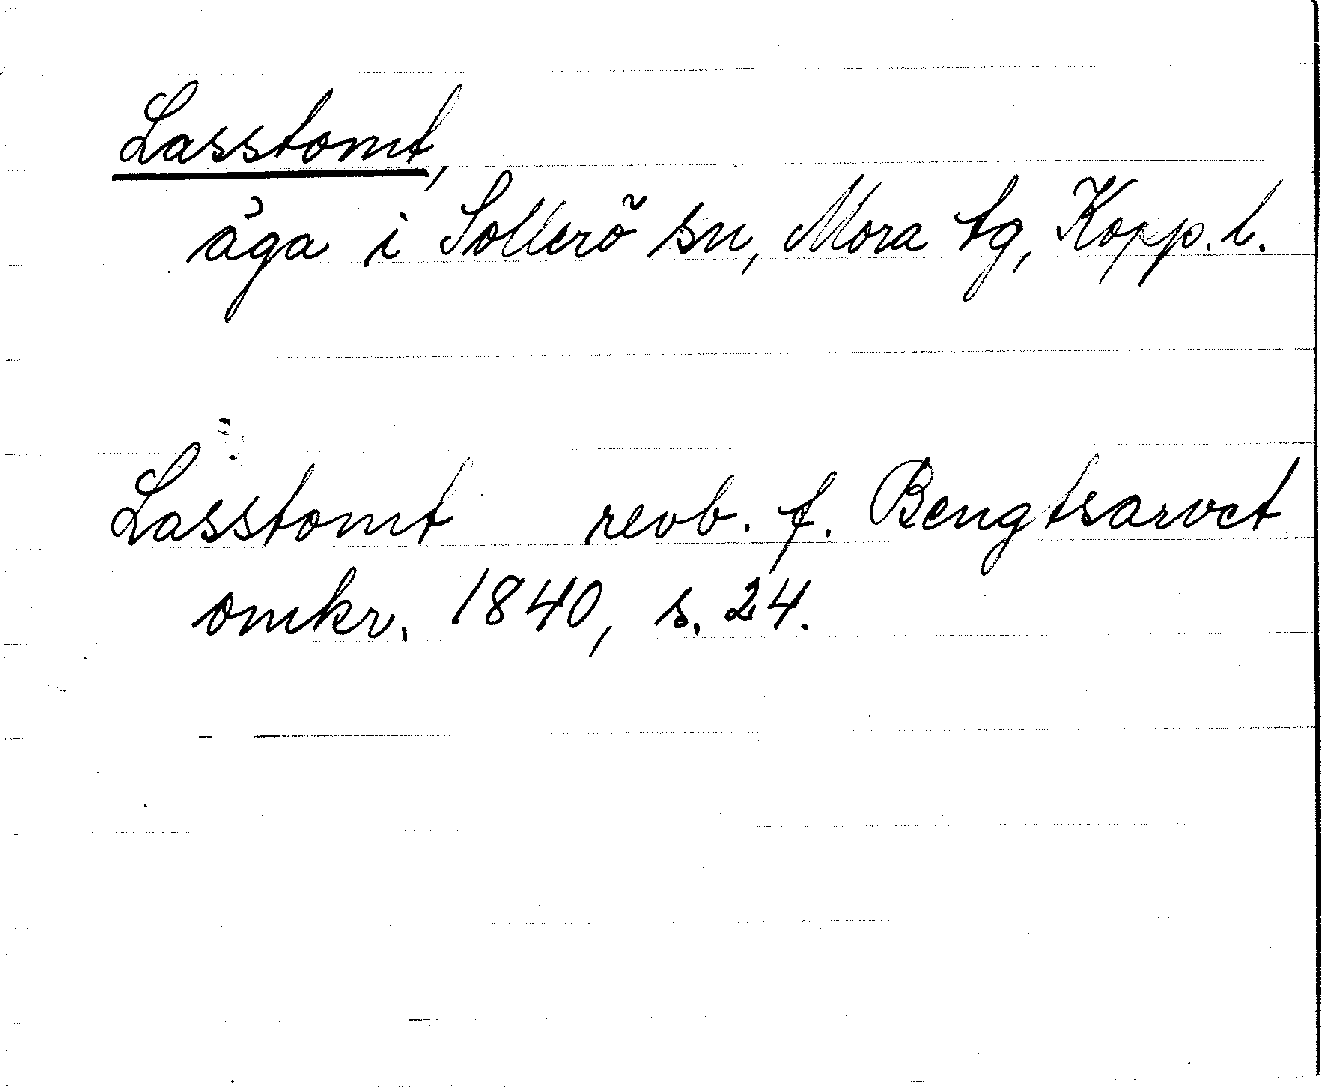 Lasstomt,
äga i Sollerö sn, Mora tg, Kopp. l.
Lasstomt revb. f. Bengtsarvet
omkr. 1840, s. 24.